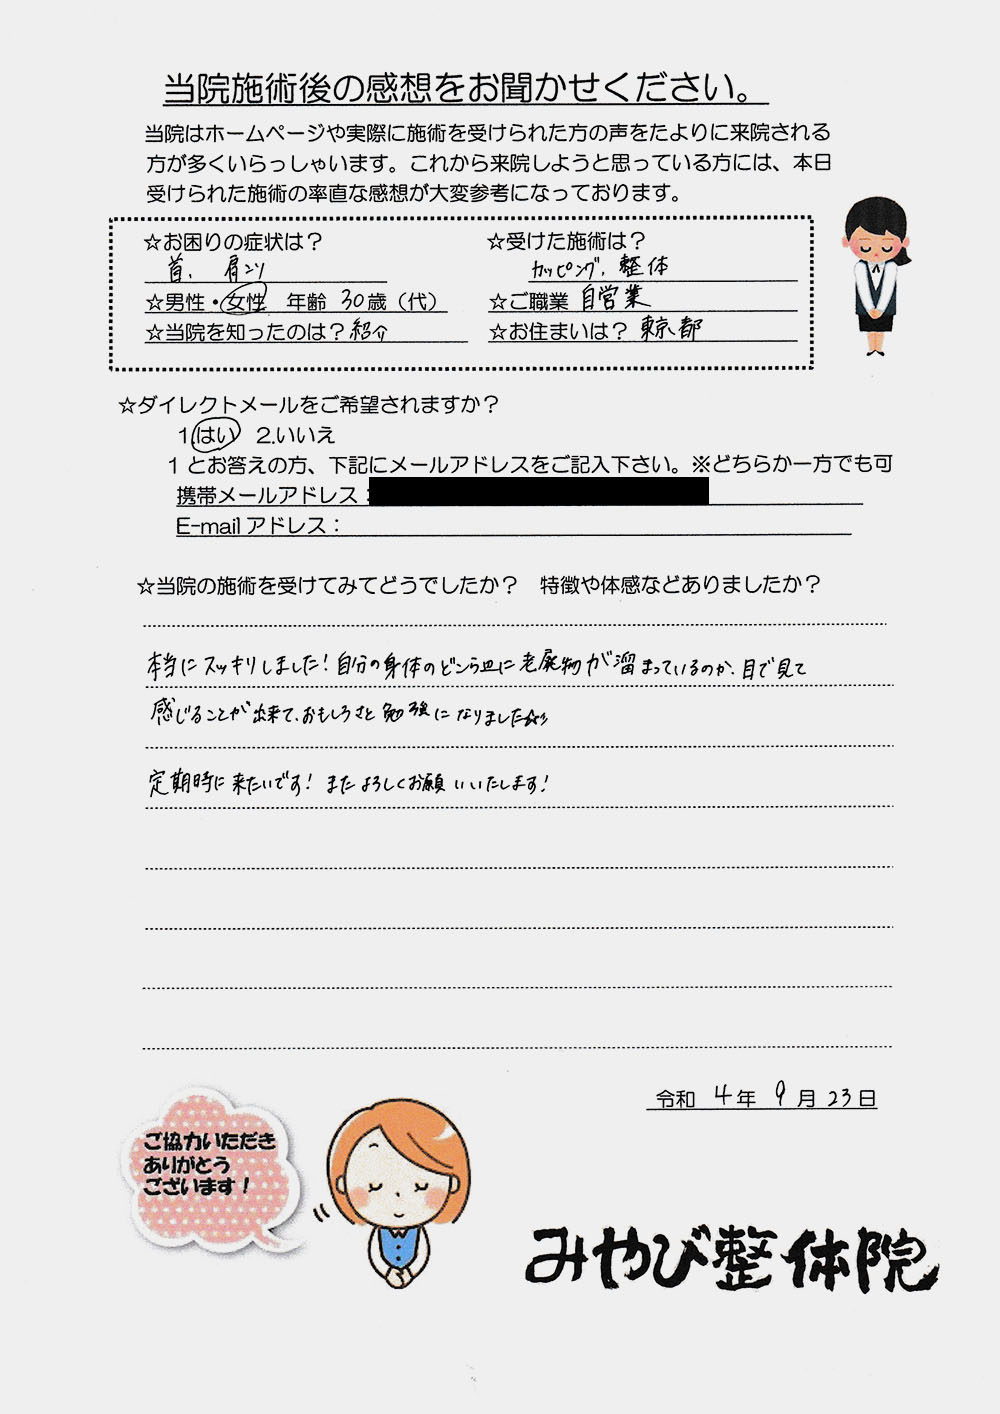 当院施術後の感想をお聞かせください。
当院はホームページや実際に施術を受けられた方の声をたよりに来院される
方が多くいらっしゃいます。これから来院しようと思っている方には、本日
受けられた施術の率直な感想が大変参考になっております。
☆お困りの症状は？ ☆受けた施術は？
首、肩コリ カッピング、整体
☆男性・女性 年齢 30歳（代） ☆ご職業 自営業
☆当院を知ったのは？紹介 ☆お住まいは？ 東京都
☆ダイレクトメールをご希望されますか？
1.はい 2.いいえ
1とお答えの方、下記にメールアドレスをご記入下さい。※どちらか一方でも可
携帯メールアドレス：
E-mailアドレス：
☆当院の施術を受けてみてどうでしたか？ 特徴や体感などありましたか？
本当にスッキリしました！自分の身体のどこら辺に老廃物が溜まっているのか、目で見て
感じることが出来て、おもしろさと勉強になりました☆
定期時に来たいです！またよろしくお願いいたします！
令和 4年 9月 23日
ご協力いただき
ありがとう
ございます！
みやび整体院